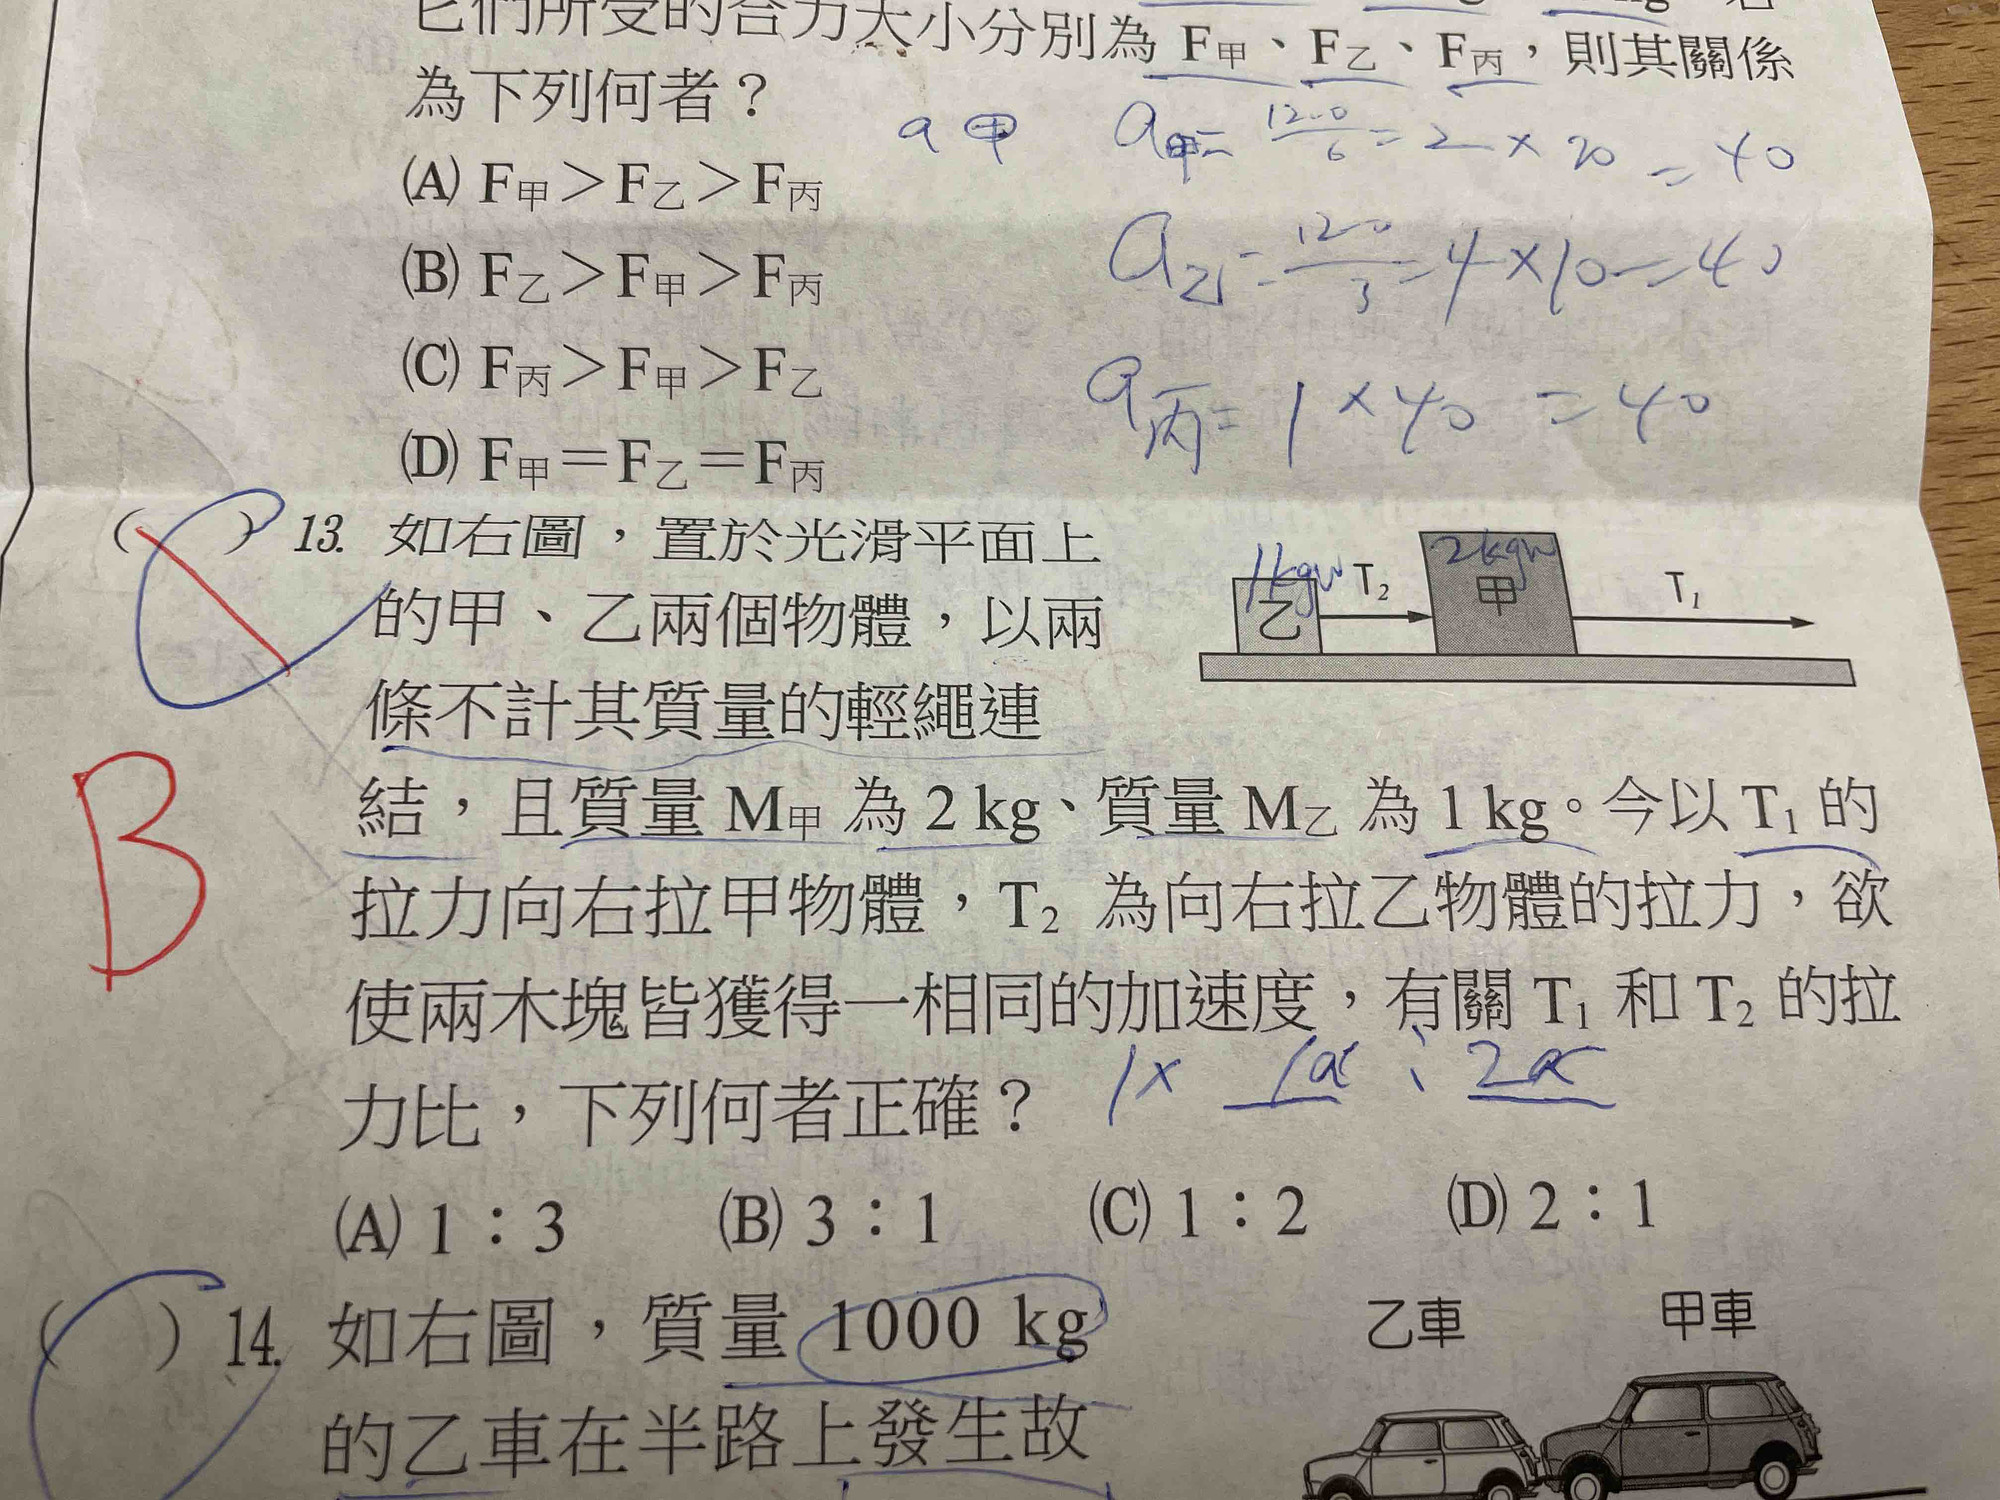 它們所受的合力大小分別為 F甲、F乙、F丙，則其關係
為下列何者？
a甲 a甲=12-0/6=2×20=40
(A) F甲＞F乙＞F丙
(B) F乙＞F甲＞F丙
a乙=12-0/3=4×10=40
(C) F丙＞F甲＞F乙
a丙=1×40=40
(D) F甲＝F乙＝F丙
( ) 13. 如右圖，置於光滑平面上
的甲、乙兩個物體，以兩
條不計其質量的輕繩連
1kgw
乙
T₂
2kgw
甲
T₁
B
結，且質量 M甲 為 2 kg、質量 M乙 為 1 kg。今以 T₁ 的
拉力向右拉甲物體，T₂ 為向右拉乙物體的拉力，欲
使兩木塊皆獲得一相同的加速度，有關 T₁ 和 T₂ 的拉
力比，下列何者正確？
1× 1a : 2a
(A) 1：3 (B) 3：1 (C) 1：2 (D) 2：1
( ) 14. 如右圖，質量 1000 kg
的乙車在半路上發生故
乙車 甲車